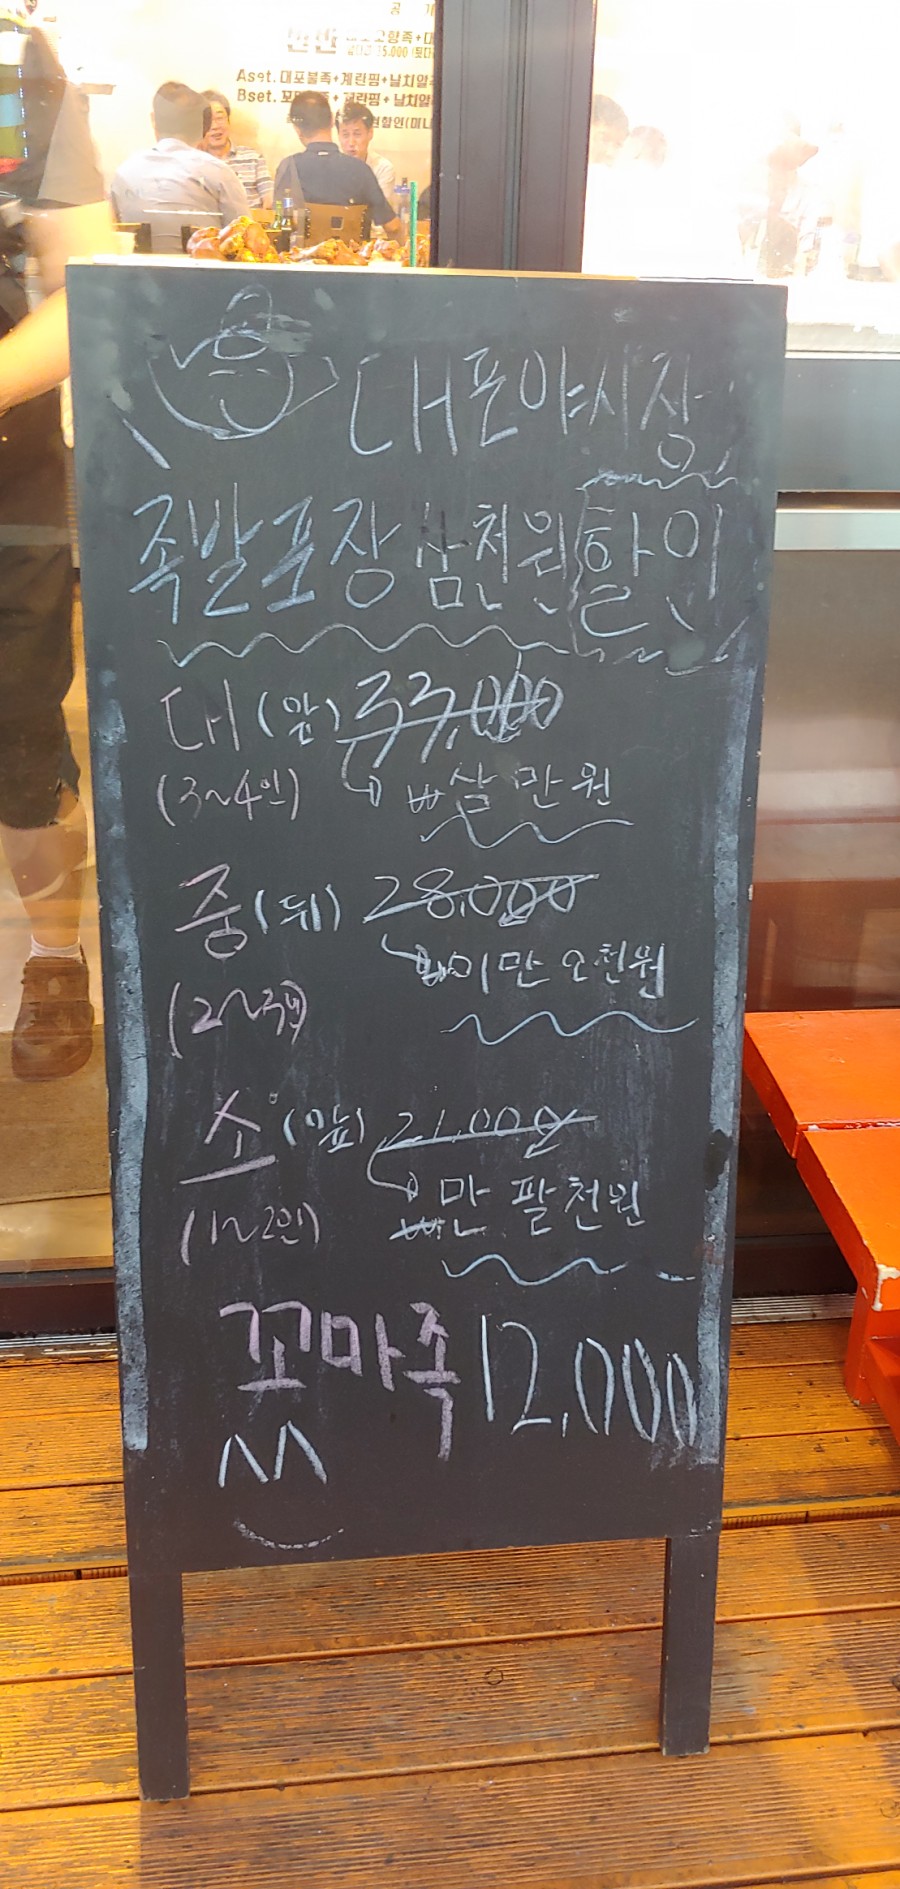 Aset. 대포불족+계란찜+날치알
Bset.
대포야시장
족발포장 삼천원 할인
대 (앞) 33,000
(3~4인) 삼만원
중 (뒤) 28,000
(2~3인) 이만 오천원
소 (앞) 21,000
(1~2인) 만 팔천원
꼬마족 12,000